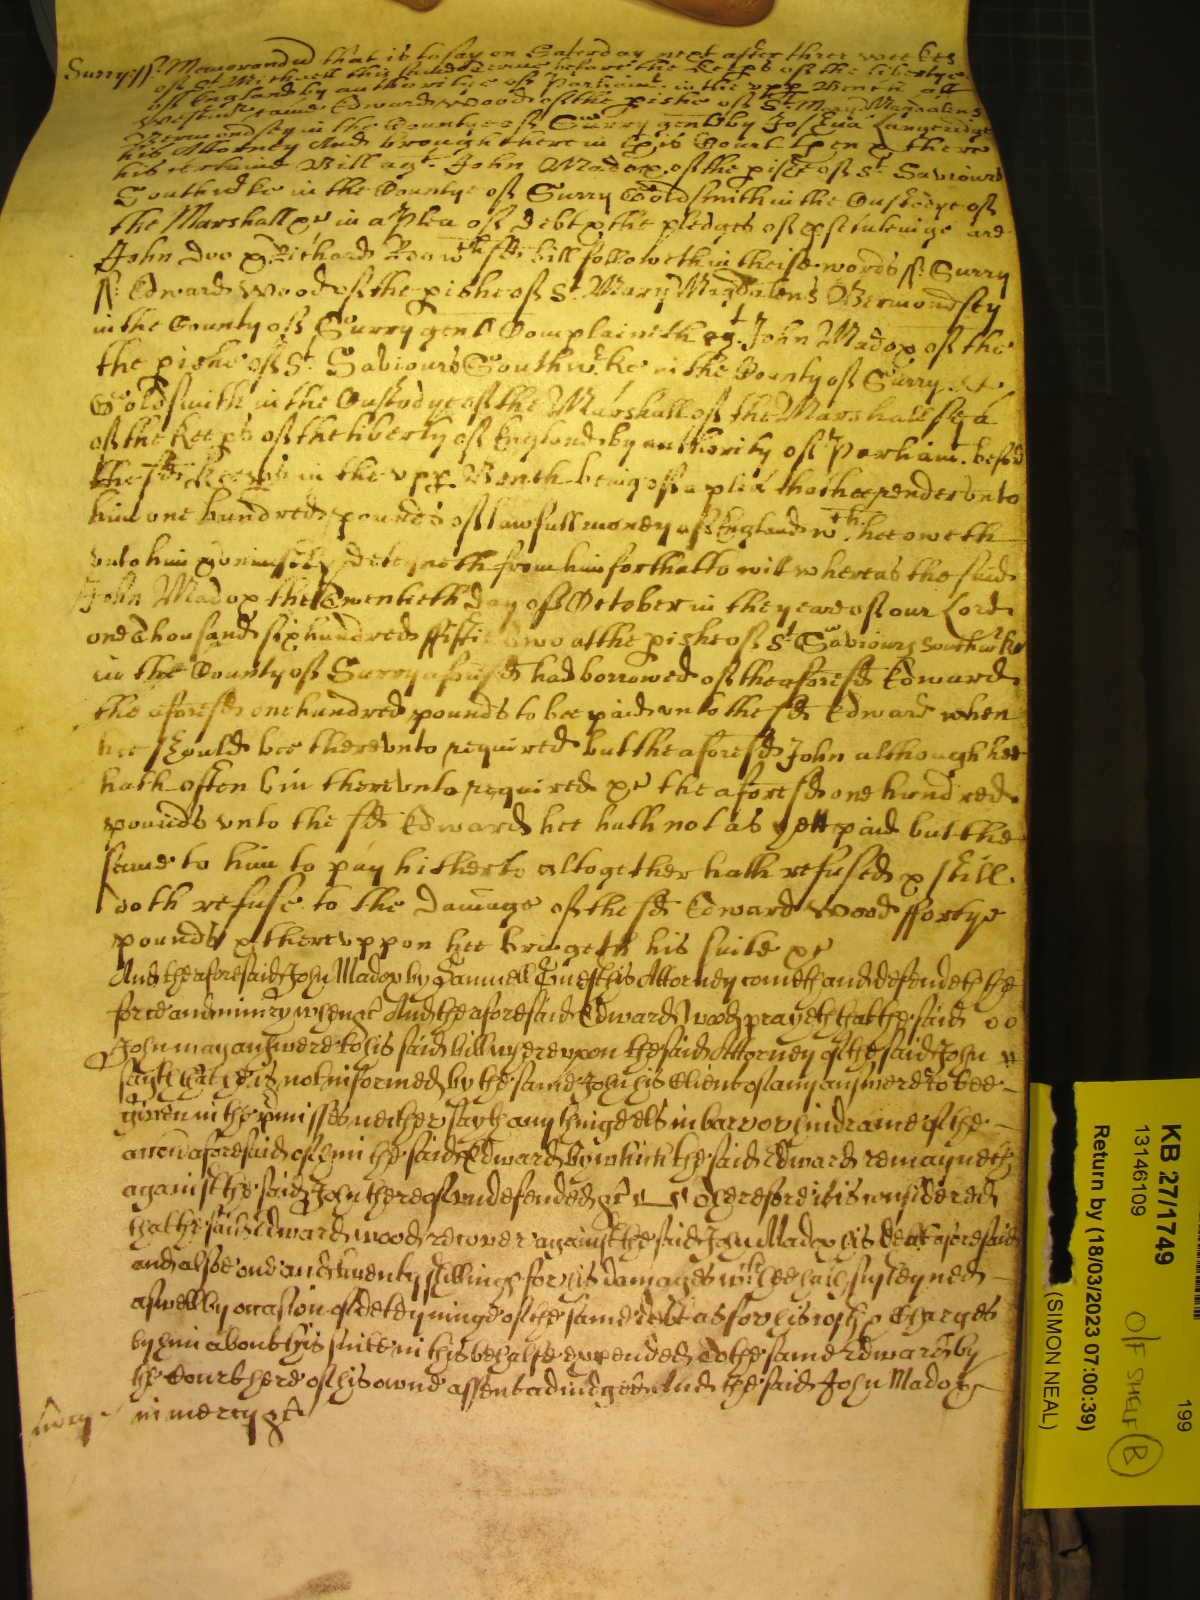 Surry ss. Memorandū that is to say on Saterday next after three weekes
of St Michaell this same terme before the Keeps of the libertye
of England by authoritye of Parliamt. in the upp Bench att
Westmr came Edward Wood of the pishe of St. Mary Magdalens
Bermondsey in the Countye of Surry gent by Joshua Langridge
his Attorney And brought here in this Court then & there
his certaine Bill agt. John Madox of the pishe of St. Saviours
Southwke in the Countye of Surry Goldsmith in the Custodye of
the Marshall &c in a Plea of debt & the pledges of psecuteinge are
John Doo & Richard Roo wch sd bill followeth in theise words ss. Surry
ss. Edward Wood of the pishe of St. Mary Magdalens Bermondsey
in the County of Surry gent Complaineth agt. John Madox of the
the pishe of St. Saviours Southwke in the County of Surry
Goldsmith in the Custodye of the Marshall of the Marshallsea
of the Keeps of the liberty of England by authority of Parliamt. before
the sd Keeps in the upp Bench being of a plea that hee render unto
him one hundred pounds of lawfull money of England wch. hee oweth
unto him & uniustly deteyneth from him for that to wit whereas the said
John Madox the Twentieth day of October in the yeare of our Lord
one thousand six hundred ffiftie two at the pishe of St Saviours Southwke
in the County of Surry aforesd had borrowed of the aforesd Edward
the aforesd one hundred pounds to bee paid unto the sd Edward when
hee should bee thereunto required but the aforesd John although hee
hath often bin thereunto required &c the aforesd one hundred
pounds unto the sd Edward hee hath not as yett paid but the
same to him to pay hitherto altogether hath refused & still
doth refuse to the Damage of the sd Edward Wood ffortye
pounds & thereuppon hee bringeth his suite &c
And the aforesaid John Madox by Samuell Guest his Attorney cometh and defendeth the
force and iniury when &c And the aforesaid Edward Wood prayeth that the said
John may answere to his said bill whereupon the said Attorney of the said John
sayth that he is not informed by the same John his Client of any answere to bee
given in the pmisses neither sayth any thinge els in barr or hindrance of the
accon aforesaid of him the said Edward by which the said Edward remayneth
against the said John thereof undefended &c Therefore it is considered
that the said Edward Wood recover against the said John Madox his debt aforesaid
and alsoe one and twenty shillings for his damages wch hee hath susteyned
aswell by occasion of deteyninge of the same debt as for his costs & Charges
by him about his suite in this behalfe expended To the same Edward by
the Court here of his owne assent adiudged And the said John Madox
mercy in mercy &c
KB 27/1749
199
13146109
Return by (18/03/2023 07:00:39)
(SIMON NEAL)
O/F SHELF
B